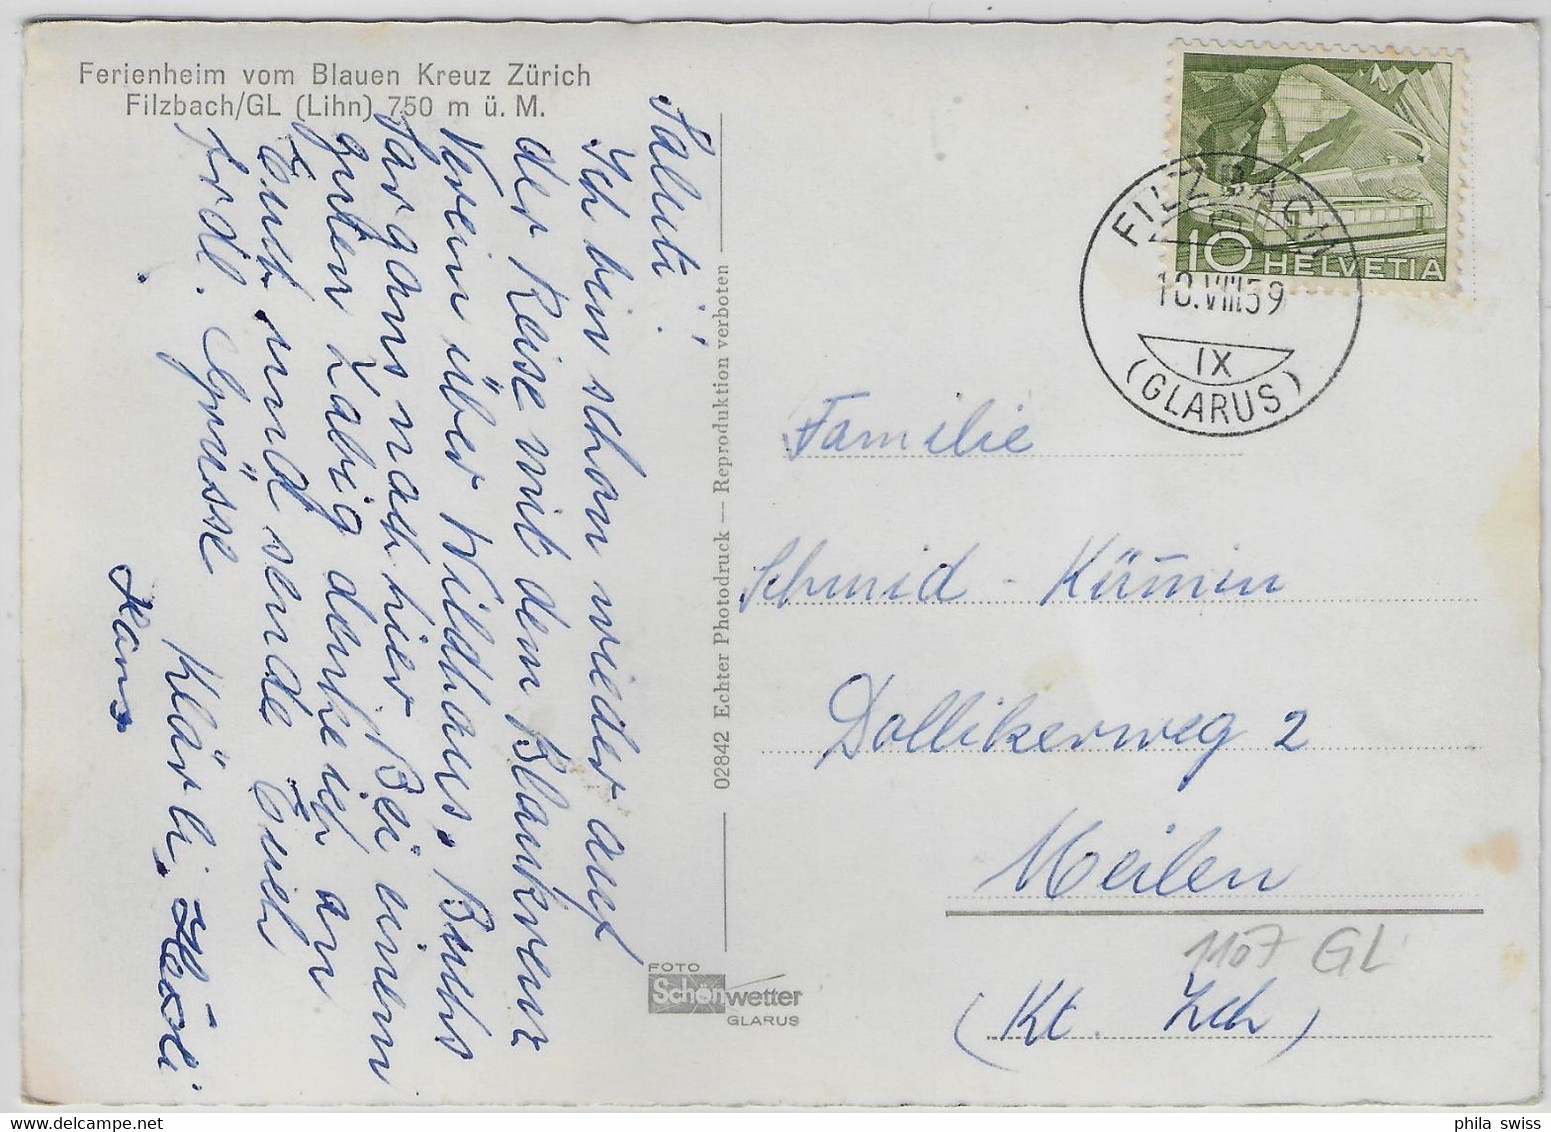 Ferienheim vom Blauen Kreuz Zürich
Filzbach/GL (Lihn) 750 m ü. M.
Saluti!
Ich bin schon wieder auf
der Reise mit dem Blaukreuz
Verein über Wildhaus, Buchs
Sargans nach hier. Bei einem
guten Zabig denke ich an
Euch und sende Euch
frdl. Grüsse
Klärli
Hans
02842 Echter Photodruck — Reproduktion verboten
FOTO
Schönwetter
GLARUS
10 HELVETIA
FILZBACH
10.VIII.59
IX
(GLARUS)
Familie
Schmid - Kümin
Dollikerweg 2
Meilen
1107 GL
(Kt. Zch)
phila swiss